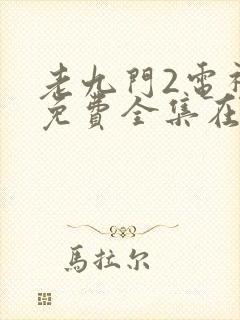 老九門2雷
免費全集在
馬拉尔